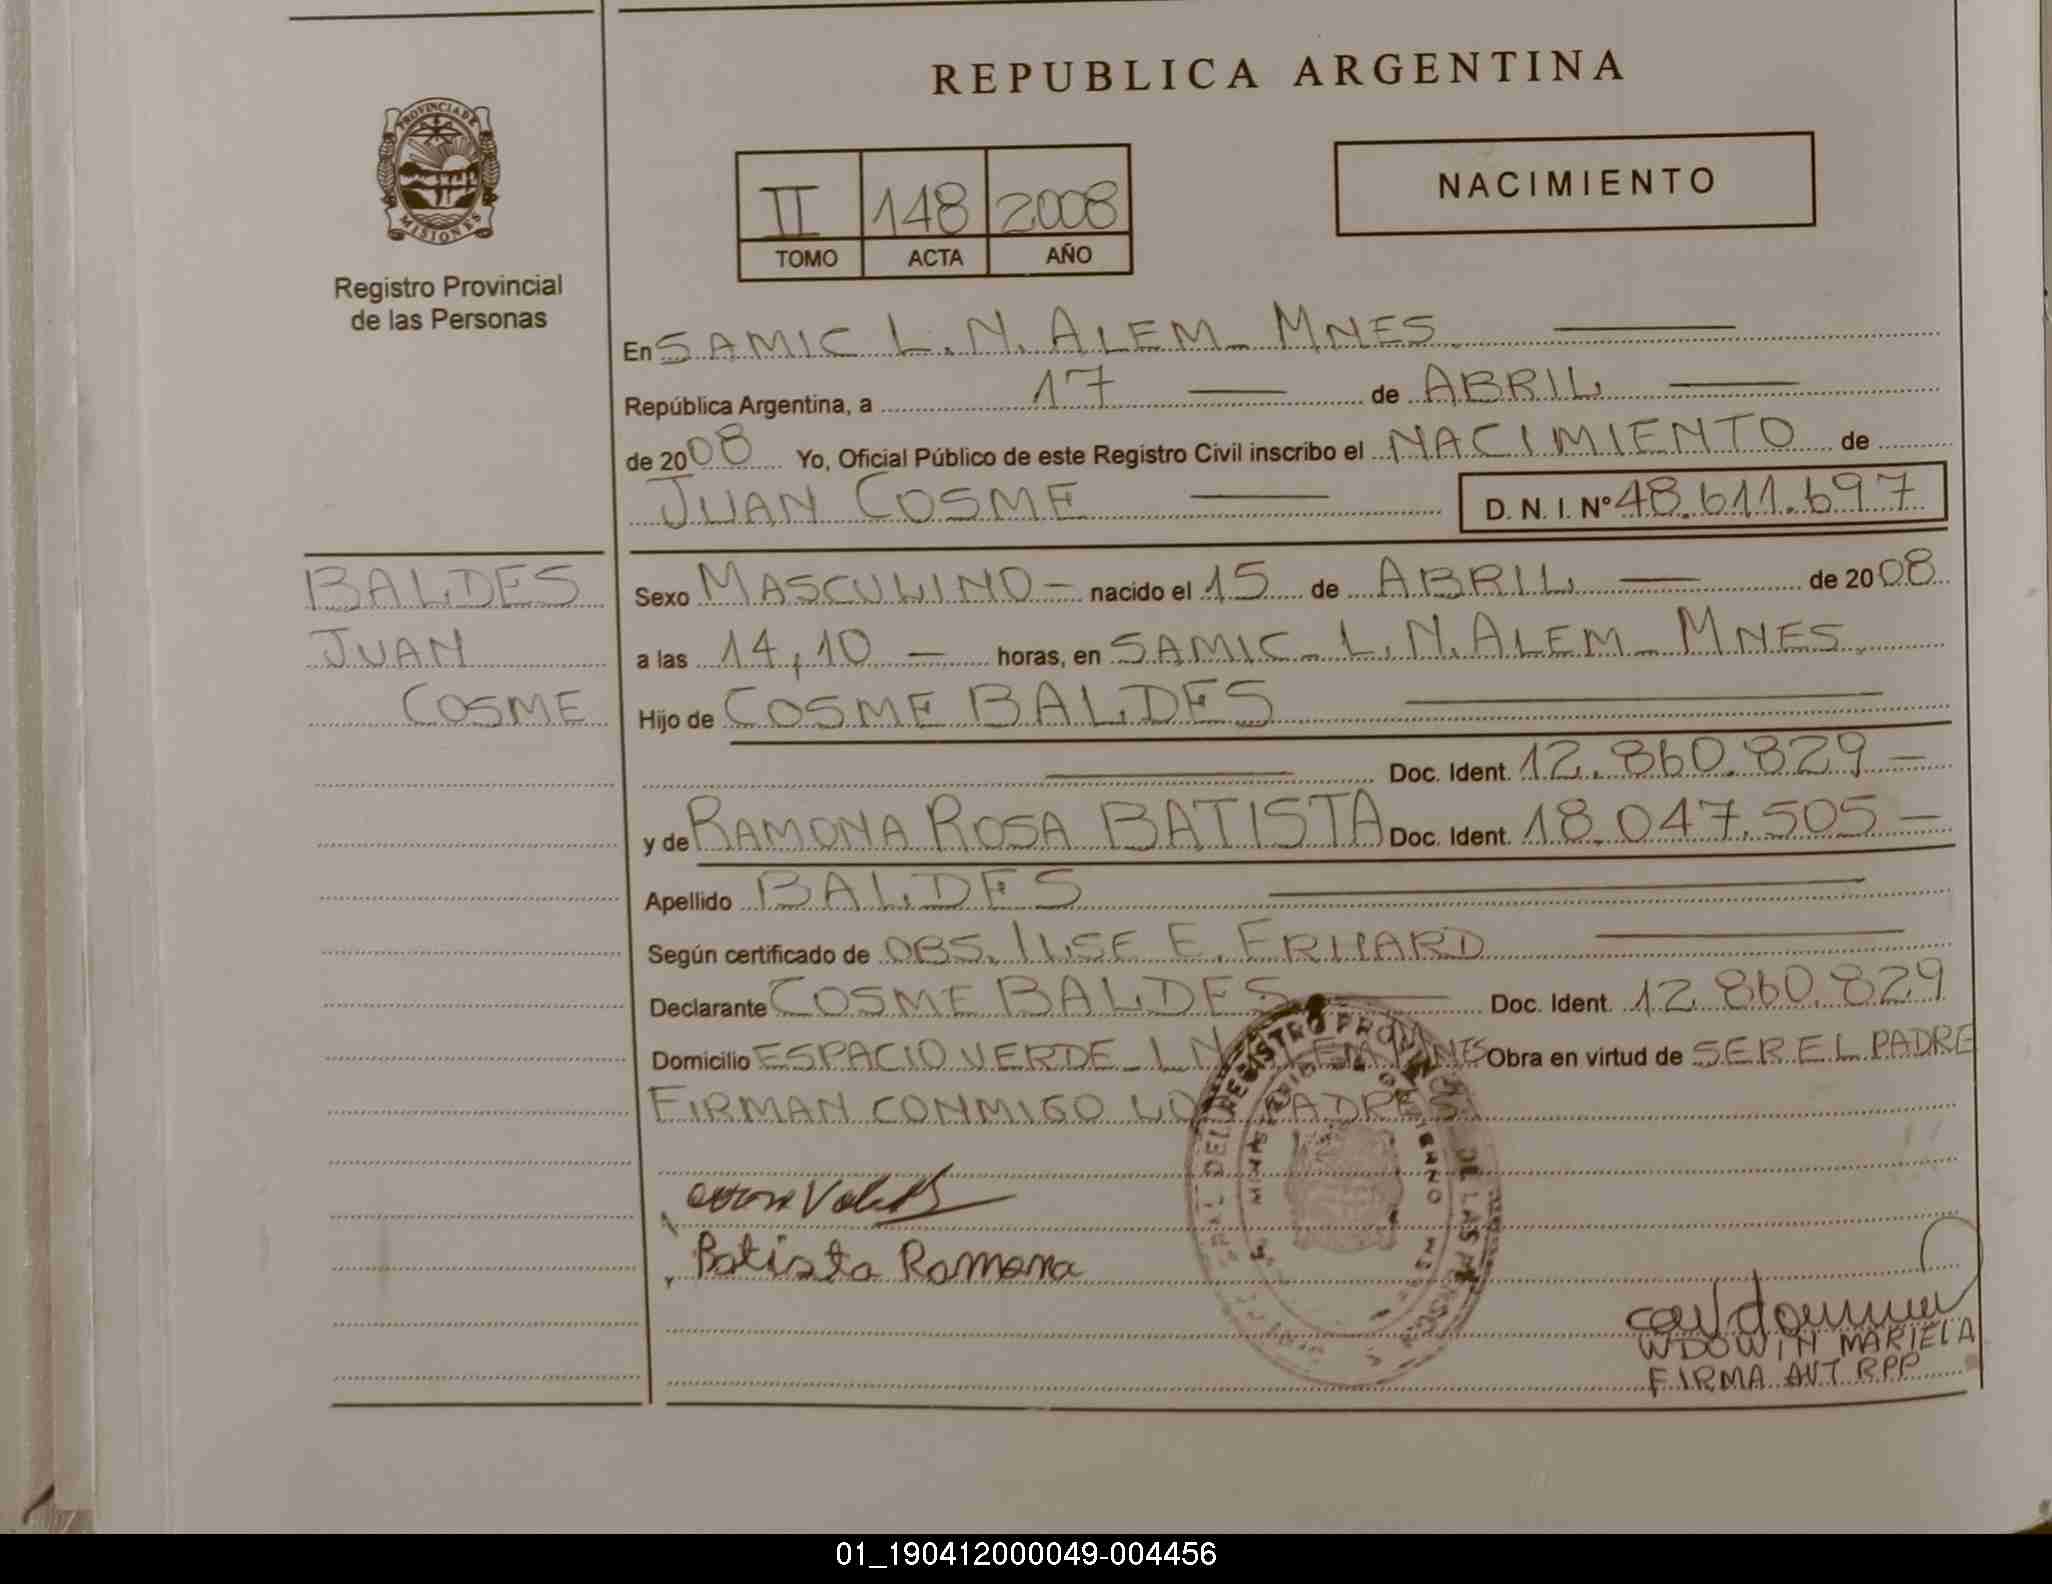 REPUBLICA ARGENTINA
PROVINCIA DE MISIONES
Registro Provincial
de las Personas
II 148 2008
TOMO ACTA AÑO
NACIMIENTO
En SAMIC L.N. ALEM - MNES.
República Argentina, a 17 de ABRIL
de 2008 Yo, Oficial Público de este Registro Civil inscribo el NACIMIENTO de
JUAN COSME D. N. I. Nº 48.611.697
BALDES
JUAN
COSME
Sexo MASCULINO - nacido el 15 de ABRIL de 2008
a las 14,10 - horas, en SAMIC - L.N. ALEM - MNES.
Hijo de COSME BALDES
Doc. Ident. 12.860.829 -
y de RAMONA ROSA BATISTA Doc. Ident. 18.047.505 -
Apellido BALDES
Según certificado de OBS. ILSE E. ERHARD
Declarante COSME BALDES Doc. Ident. 12.860.829
Domicilio ESPACIO VERDE - L N ALEM MNES Obra en virtud de SER EL PADRE
FIRMAN CONMIGO LOS PADRES
Batista Ramona
REGISTRO PROVINCIAL DE LAS
MINISTERIO DE GOBIERNO
WDOWIN MARIELA
FIRMA AUT RPP
01_190412000049-004456